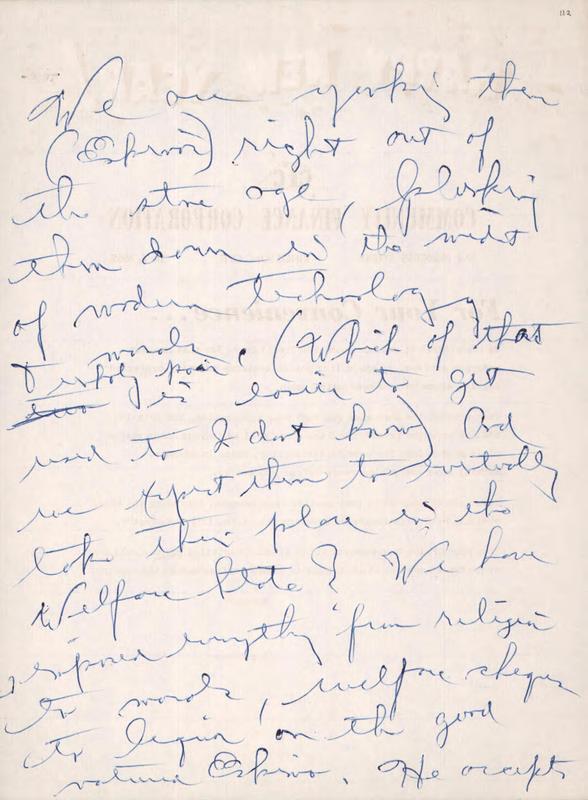 112
We are yanking them
(Eskimo) right out of
the stone age, plunking
them down in the midst
of modern technology
& morals. (Which of that
unholy pair is easier to get
used to I dont know) And
we expect them to eventually
take their place in the
Welfare State? We have
imposed everything from religion
to morals, welfare cheques
to liquor on the good
natured Eskimo. He accepts
COMMUNITY FINANCE CORPORATION
For Your Convenience...